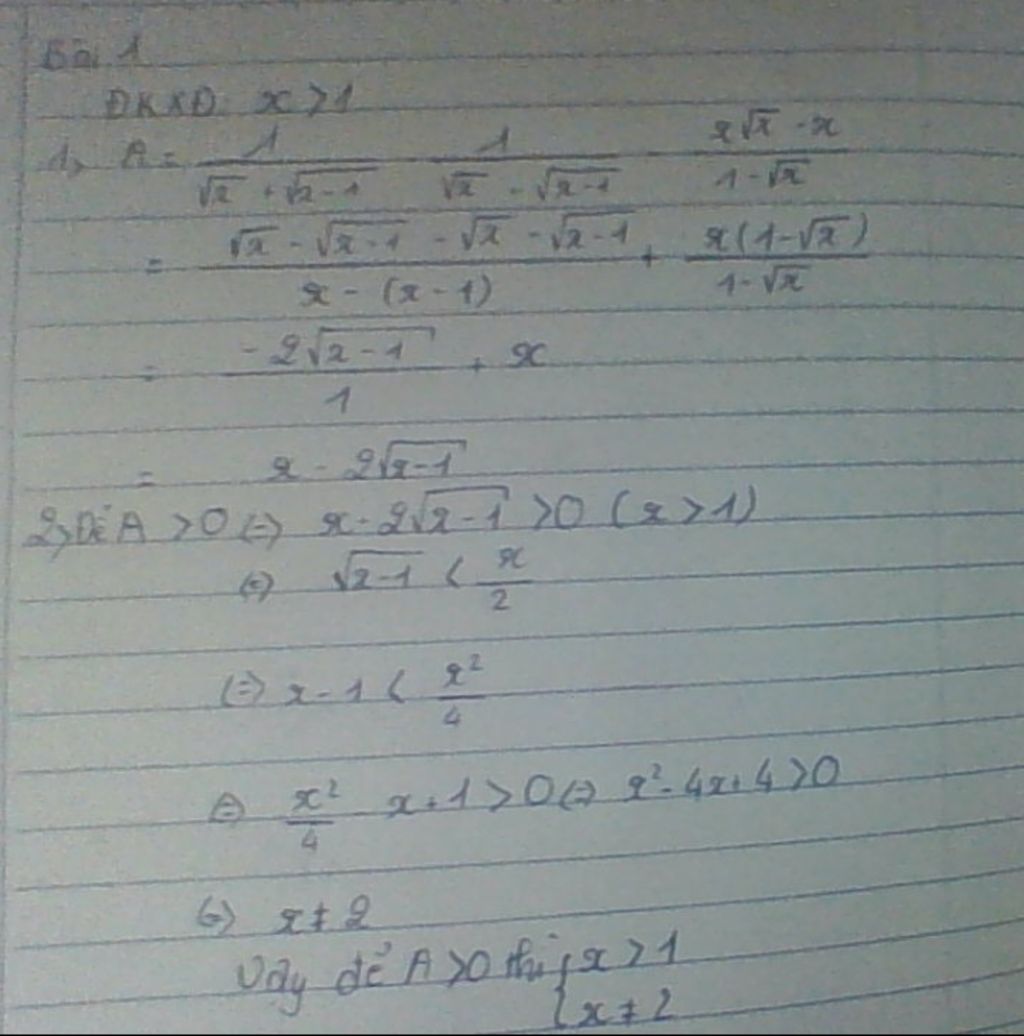 Bài 1
ĐKXĐ: x > 1
1, A = 1/(√x + √(x-1)) - 1/(√x - √(x-1)) - (x√x - x)/(1-√x)
= (√x - √(x-1) - √x - √(x-1))/(x - (x-1)) + x(1-√x)/(1-√x)
= (-2√(x-1))/1 + x
= x - 2√(x-1)
2, Để A > 0 (=) x - 2√(x-1) > 0 (x > 1)
(=) √(x-1) < x/2
(=) x - 1 < x²/4
(=) x²/4 - x + 1 > 0 (=) x² - 4x + 4 > 0
(=) x ≠ 2
Vậy để A > 0 thì { x > 1
x ≠ 2